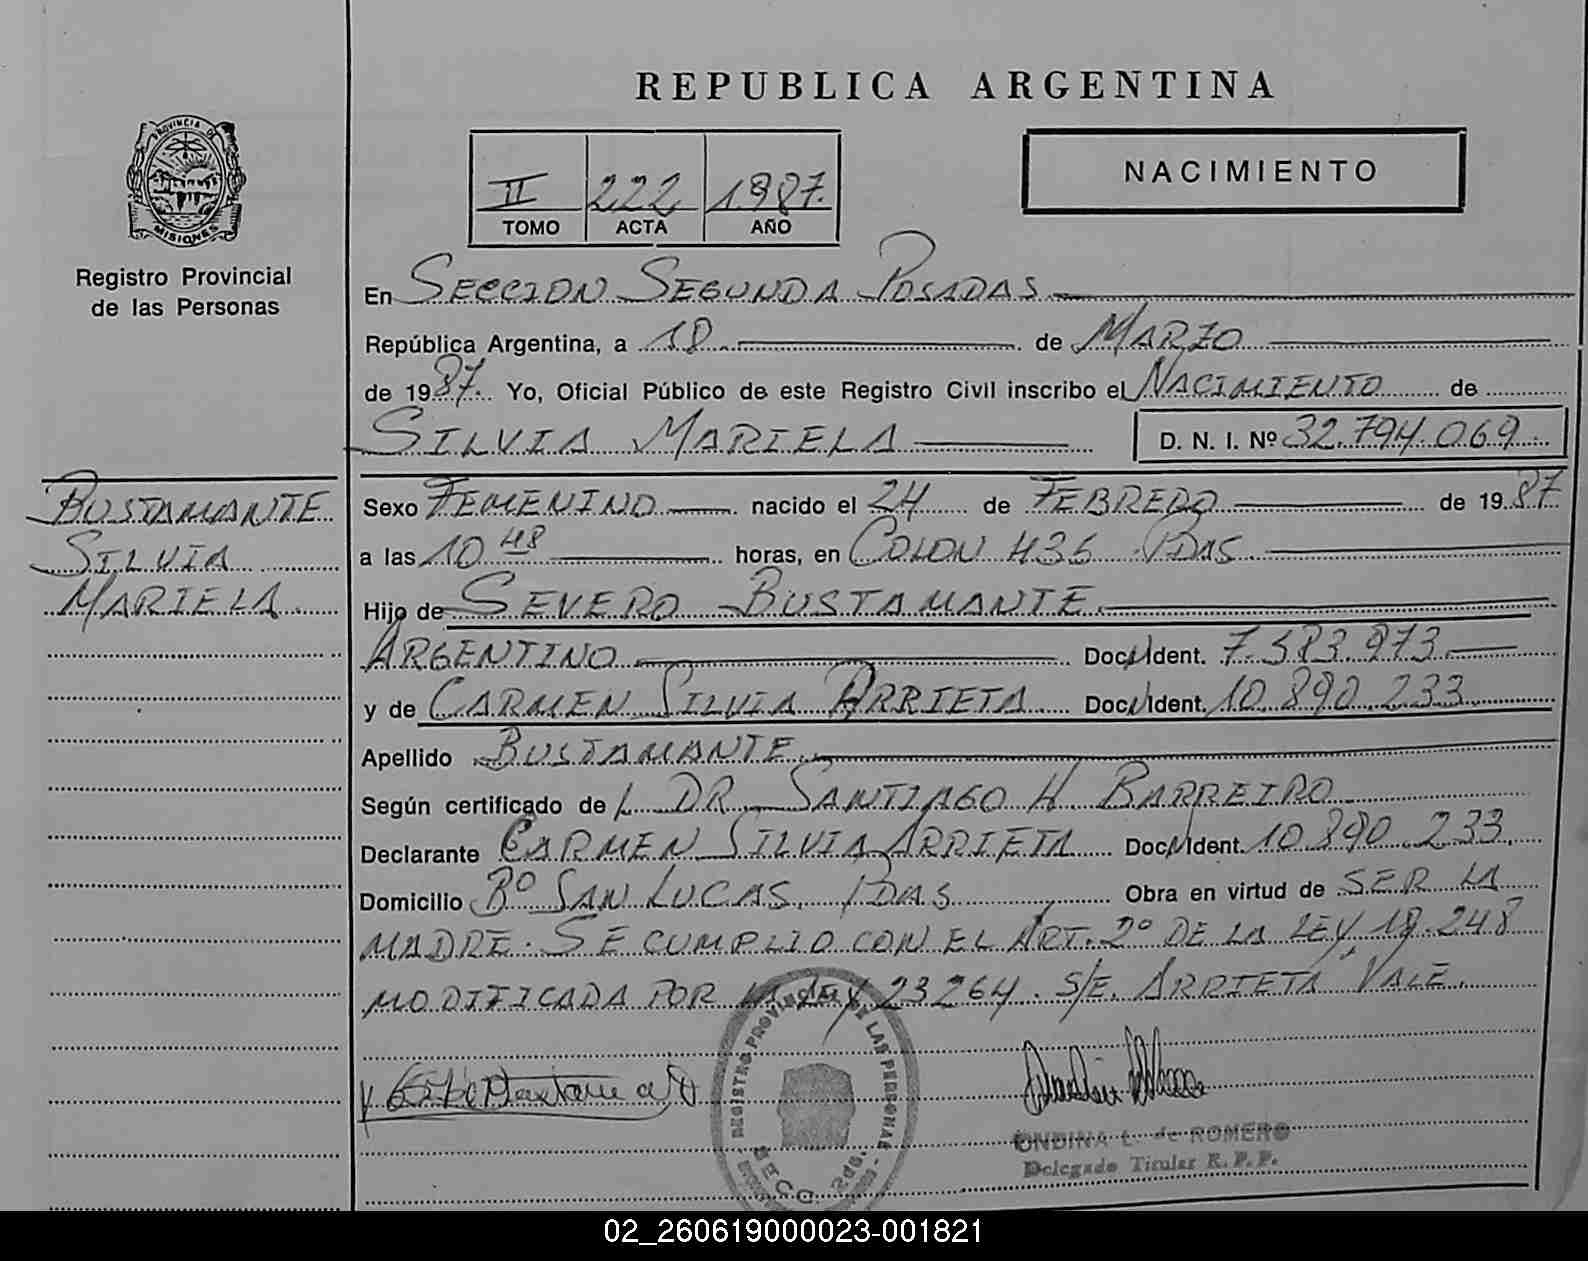 REPUBLICA ARGENTINA
PROVINCIA DE
MISIONES
Registro Provincial
de las Personas
II 222 1987.
TOMO ACTA AÑO
NACIMIENTO
En SECCION SEGUNDA POSADAS
República Argentina, a 18 de MARZO
de 1987. Yo, Oficial Público de este Registro Civil inscribo el NACIMIENTO de
SILVIA MARIELA D. N. I. Nº 32.794.069
BUSTAMANTE
SILVIA
MARIELA
Sexo FEMENINO nacido el 24 de FEBRERO de 1987
a las 10 48 horas, en COLON 436 PDAS
Hijo de SEVERO BUSTAMANTE
ARGENTINO Doc. Ident. 7.583.973
y de CARMEN SILVIA ARRIETA Doc. Ident. 10.890.233
Apellido BUSTAMANTE
Según certificado de L DR. SANTIAGO H. BARREIRO
Declarante CARMEN SILVIA ARRIETA Doc. Ident. 10.890.233
Domicilio Bº SAN LUCAS. PDAS Obra en virtud de SER LA
MADRE. SE CUMPLIO CON EL ART. 2º DE LA LEY 18.248
MODIFICADA POR LA LEY 23264. S/E. ARRIETA VALE.
REGISTRO PROVINCIAL DE LAS PERSONAS
SECC. 2da.
ONDINA L. de ROMERO
Delegado Titular R. P. P.
02_260619000023-001821